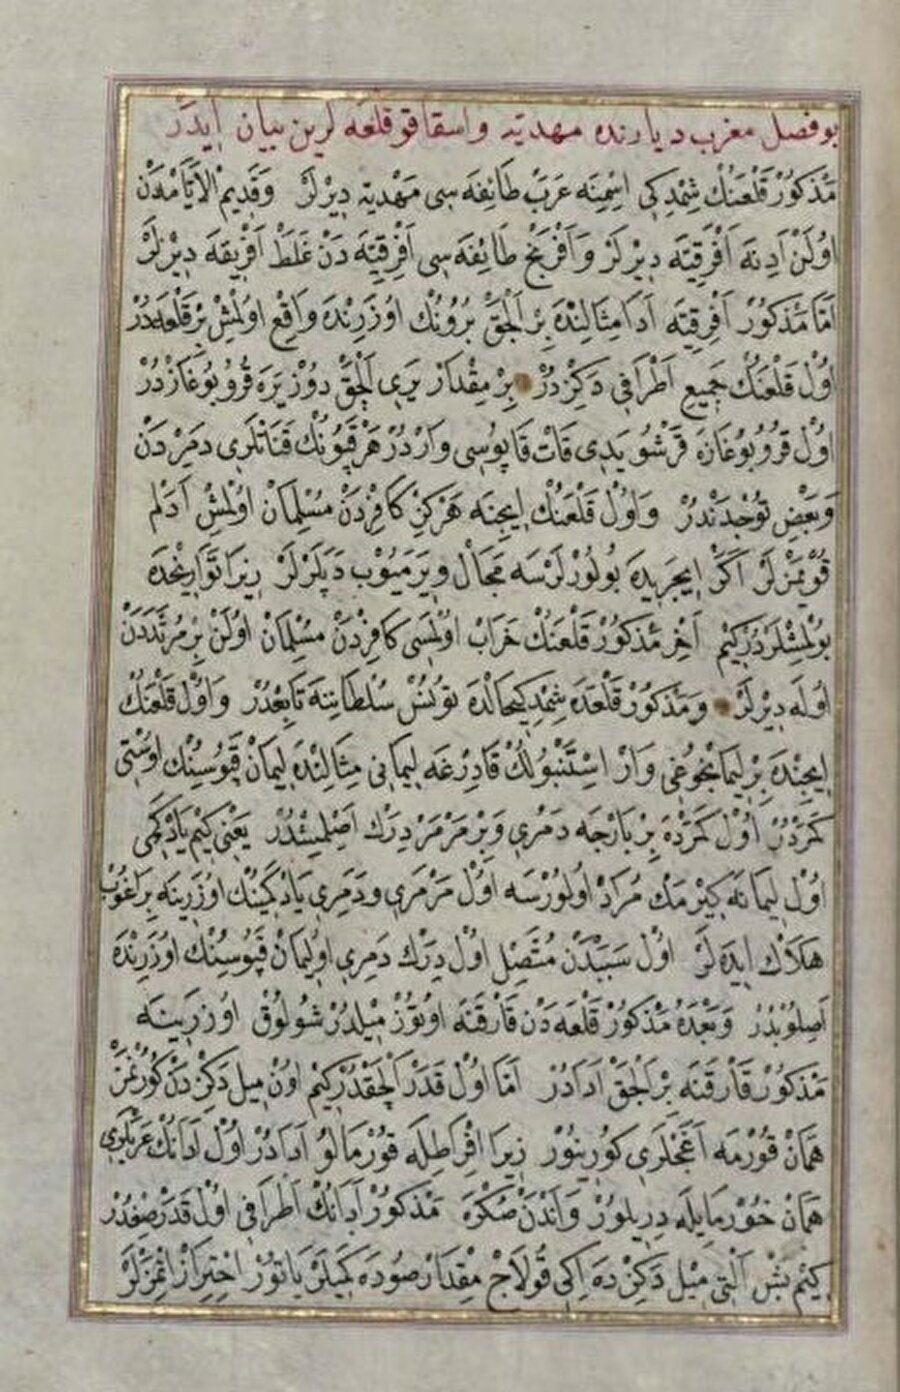 بو فصل مغرب ديارنده مهديه و اسقاقو قلعه لرين بيان ايدر
مَذكُورْ قَلعَنُكْ شِمْدِكِي اِسْمِنَه عَرَبْ طَائِفَه سِى مَهْديَه دِيرْلَرْ وَقَدِيمْ الاَيَّامْدَنْ
اوُلَنْ اَدِنَه اَفْرِقِيَه دِيرْلَرْ وَاَفْرَنْجْ طَائِفَه سِى اَفْرِقِيَه دَنْ غَلَطْ اَفْرِيقَه دِيرْلَرْ
اَمَّا مَذكُورْ اَفْرِقِيَه اَدَا مِثَالِنْدَه بِرْ اَلْچَقْ بُرُونُكْ اوُزَرِنْدَه وَاقِعْ اوُلْمِشْ بِرْ قَلْعَه دُرْ
اوُلْ قَلْعَنُكْ جَمِيعِ اَطْرَافِي دَكِزْدُرْ بِرْ مِقْدَارْ يَرِى اَلْچَقْ دوُزْ يَرَه قُرُو بُوغَازْدُرْ
اوُلْ قُرُو بُوغَازَه قَرْشُو يَدِى قَاتْ قَاپُوسِى وَارْدُرْ هَرْ قَپُونُكْ قَنَاتْلَرِى دَمِرْدَنْ
وَبَعْضِ تُوجْدَنْدُرْ وَاوُلْ قَلْعَنُكْ اِيچِنَه هَرْكِزْ كَافِرْدَنْ مُسْلِمَانْ اوُلْمِشْ اَدَمْ
قُويْمَزْلَرْ اَكَرْ اِيچَرِيدَه بُولُورْلَرْسَه مَجَالْ وِيرْمَيُوبْ دَپَلَرْلَرْ زِيرَا تَوَارِيخْدَه
بُولْمِشْلَرْدُرْ كِيمْ اَخِرْ مَذكُورْ قَلْعَنُكْ خَرَابْ اوُلْمَسِى كَافِرْدَنْ مُسْلِمَانْ اوُلَنْ بِرْ مُرْتَدْدَنْ
اوُلَه دِيرْلَرْ وَمَذكُورْ قَلْعَه شِمْدِيكِيحَالْدَه تُونُسْ سُلْطَانِنَه تَابِعْدُرْ وَاوُلْ قَلْعَنُكْ
اِيچِنْدَه بِرْ لِيمَانْجُوغِى وَارْ اِسْتَنْبُولُكْ قَادِرْغَه لِيمَانِى مِثَالِنْدَه لِيمَانْ قَپُوسِنُكْ اوُسْتِى
كَمَرْدُرْ اوُلْ كَمَرْدَه بِرْ پَارْچَه دَمِرِى وَبِرْ مَرْمَرْ دِرَكْ اَصِلْمِشْدُرْ يَعْنِى كِيمْ يَادْ كَمِى
اوُلْ لِيمَانَه كِيرْمَكْ مُرَادْ اوُلُورْسَه اوُلْ مَرْمَرِى وَدَمِرِى يَادْ كَمِينُكْ اوُزَرِينَه بِرَاغُوبْ
هَلَاكْ اِيدَه لَرْ اوُلْ سَبَبْدَنْ مُتَّصِلْ اوُلْ دِرَكْ دَمِرِى اوُلِيمَانْ قَپُوسِنُكْ اوُزَرِنْدَه
اَصِلُوبْدُرْ وَبَعْدَهُ مَذكُورْ قَلْعَه دَنْ قَارْقَنَه اوُتُوزْ مِيلْدُرْ شُولُوقْ اوُزَرِينَه
مَذكُورْ قَارْقَنَه بِرْ اَلْچَقْ اَدَادُرْ اَمَّا اوُلْ قَدَرْ اَلْچَقْدُرْ كِيمْ اوُنْ مِيلْ دَكِزْدَنْ كُورُنْمَزْ
هَمَانْ قُورْمَه اَغَجْلَرِى كُورِينُورْ زِيرَا اِفْرَاطِلَه قُورْمَالُو اَدَادُرْ اوُلْ اَدَانُكْ عَرَبْلَرِى
هَمَانْ خُورْمَايِلَه دِرِيلُورْ وَاَنْدَنْ صُكْرَه مَذكُورْ اَدَانُكْ اَطْرَافِى اوُلْ قَدَرْ صِغْدُرْ
كِيمْ بَشْ اَلْتِى مِيلْ دَكِزْدَه اِكِى قُولَاجْ مِقْدَارْ صُودَه كَمِيلَرْ يَاتُورْ اِحْتِرَازْ اِتْمَزْلَرْ